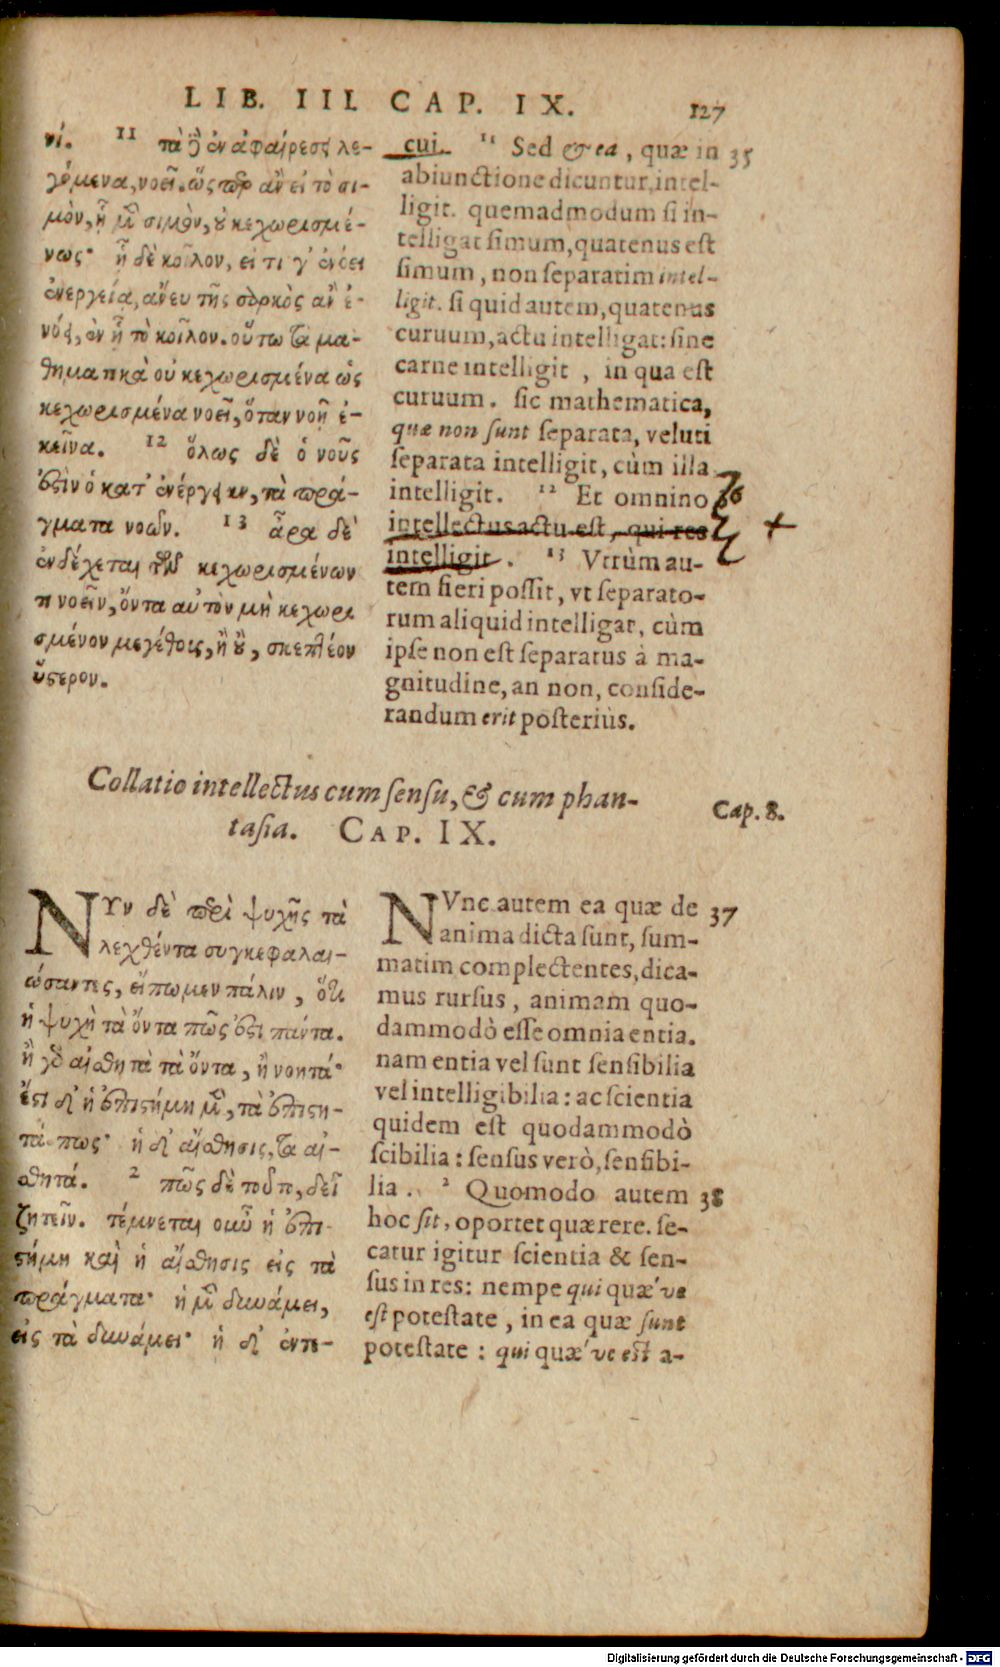 LIB. III. CAP. IX. 127
νί. 11 τὰ ϳ ἐν ἀφαιρέσει λε-
γόμενα, νοεῖ. ὥσπερ ἂν εἰ τὸ σι-
μὸν, ᾗ μὲν σιμὸν, οὐ κεχωρισμέ-
νως· ᾗ δὲ κοῖλον, εἴ τι γ' ἐνόει
ἐνεργείᾳ, ἄνευ τῆς σαρκὸς ἂν ἐ-
νόει, ἐν ᾗ τὸ κοῖλον. οὕτω τὰ μα-
θηματικὰ οὐ κεχωρισμένα ὡς
κεχωρισμένα νοεῖ, ὅταν νοῇ ἐ-
κεῖνα. 12 ὅλως δὲ ὁ νοῦς
ἐστὶν ὁ κατ' ἐνέργειαν, τὰ πρά-
γματα νοῶν. 13 ἆρα δὲ
ἐνδέχεται τῶν κεχωρισμένων
τι νοεῖν, ὄντα αὐτὸν μὴ κεχωρι
σμένον μεγέθους, ἢ οὔ, σκεπτέον
ὕστερον.
cui. 11 Sed & ea, quæ in 35
abiunctione dicuntur, intel-
ligit. quemadmodum si in-
telligat simum, quatenus est
simum, non separatim intel-
ligit. si quid autem, quatenus
curuum, actu intelligat: sine
carne intelligit, in qua est
curuum. sic mathematica,
quæ non sunt separata, veluti
separata intelligit, cùm illa
intelligit. 12 Et omnino 36
intellectus actu est, qui res +
intelligit. 13 Vtrùm au-
tem fieri possit, vt separato-
rum aliquid intelligat, cùm
ipse non est separatus à ma-
gnitudine, an non, conside-
randum erit posterius.
Collatio intellectus cum sensu, & cum phan-
tasia. CAP. IX.
Cap. 8.
ΝΥν δὲ περὶ ψυχῆς τὰ
λεχθέντα συγκεφαλαι-
ώσαντες, εἴπωμεν πάλιν, ὅτι
ἡ ψυχὴ τὰ ὄντα πῶς ἐστι πάντα.
ἢ γὰρ αἰσθητὰ τὰ ὄντα, ἢ νοητά·
ἔστι δ' ἡ ἐπιστήμη μὲν, τὰ ἐπιστη-
τά πως· ἡ δ' αἴσθησις, τὰ αἰ-
σθητά. 2 πῶς δὲ τοῦτο, δεῖ
ζητεῖν. τέμνεται οὖν ἡ ἐπι-
στήμη καὶ ἡ αἴσθησις εἰς τὰ
πράγματα· ἡ μὲν δυνάμει,
εἰς τὰ δυνάμει· ἡ δ' ἐντε-
NVnc autem ea quæ de 37
anima dicta sunt, sum-
matim complectentes, dica-
mus rursus, animam quo-
dammodò esse omnia entia.
nam entia vel sunt sensibilia
vel intelligibilia: ac scientia
quidem est quodammodò
scibilia: sensus verò, sensibi-
lia. 2 Quomodo autem 38
hoc sit, oportet quærere. se-
catur igitur scientia & sen-
sus in res: nempe qui quæ've
est potestate, in ea quæ sunt
potestate: qui quæ've est a-
Digitalisierung gefördert durch die Deutsche Forschungsgemeinschaft - DFG